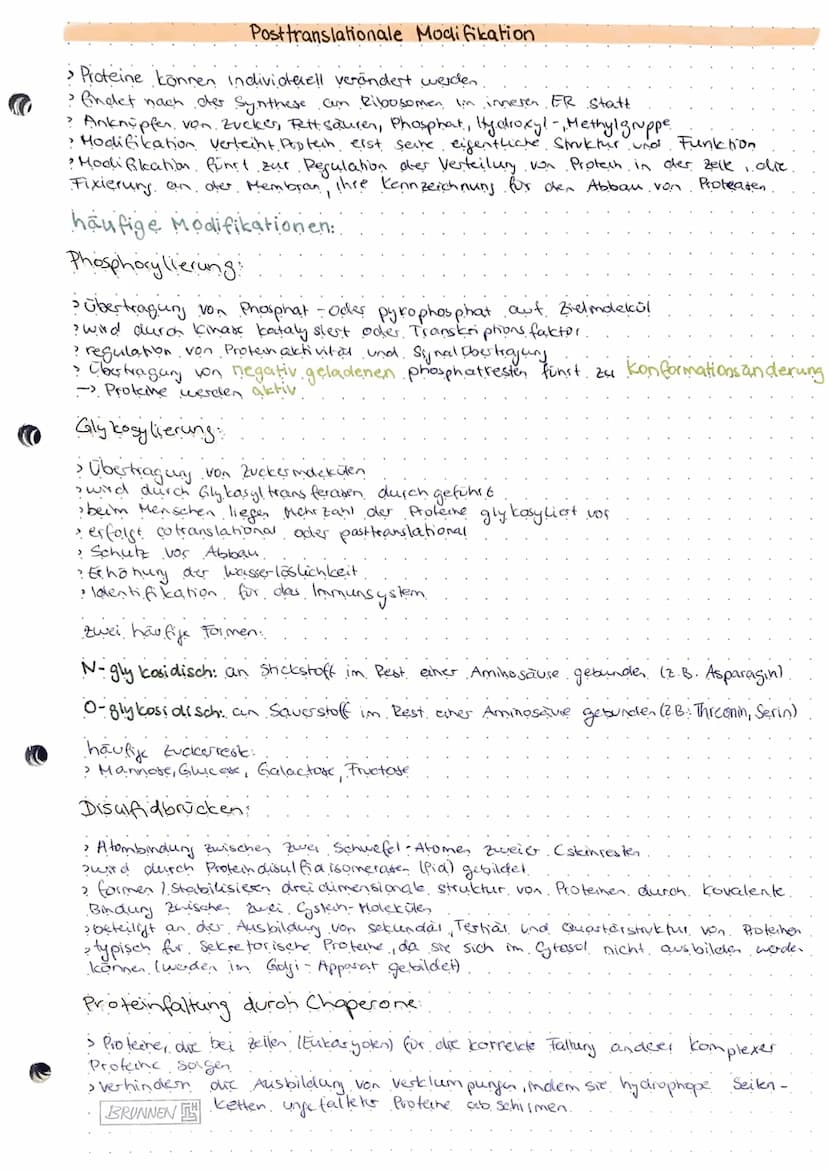 Posttranslationale Modifikation
> Proteine können individuell verändert werden
> findet nach der Synthese am Ribosomen im inneren ER statt
> Anknüpfen von Zucker, Fettsäuren, Phosphat, Hydroxyl-, Methylgruppe
> Modifikation verleiht Protein erst seine eigentliche Struktur und Funktion
> Modifikation führt zur Regulation der Verteilung von Protein in der Zelle, die
Fixierung an der Membran, ihre Kennzeichnung für den Abbau von Proteasen
häufige Modifikationen:
Phosphorylierung:
> Übertragung von Phosphat- oder pyrophosphat auf Zielmolekül
> wird durch Kinase katalysiert oder Transkriptionsfaktor
> regulation von Proteinaktivität und Signalübertragung
> Übertragung von negativ geladenen phosphatresten führt zu Konformationsänderung
-> Proteine werden aktiv
Glykosylierung:
> Übertragung von Zuckermolekülen
> wird durch Glykosyltransferasen durchgeführt
> beim Menschen liegen Mehrzahl der Proteine glykosyliert vor
> erfolgt cotranslational oder posttranslational
> Schutz vor Abbau
> Erhöhung der Wasserlöslichkeit
> Identifikation für das Immunsystem
zwei häufige Formen:
N-glykosidisch: an Stickstoff im Rest einer Aminosäure gebunden (z.B. Asparagin)
O-glykosidisch: an Sauerstoff im Rest einer Aminosäure gebunden (z.B: Threonin, Serin)
häufige Zuckerreste:
> Mannose, Glucose, Galactose, Fructose
Disulfidbrücken:
> Atombindung zwischen zwei Schwefel-Atomen zweier
> wird durch Proteindisulfidisomerasen (Pid) gebildet
> formen / Stabilisieren dreidimensionale Struktur von Proteinen durch kovalente
Bindung zwischen zwei Cystein-Molekülen
> beteiligt an der Ausbildung von sekundär, Tertiär und Quartärstruktur von Proteinen
> typisch für sekretorische Proteine, da sie sich im Cytosol nicht ausbilden werden
können (werden im Golgi-Apparat gebildet)
Proteinfaltung durch Chaperone:
> Proteine, die bei Zellen (Eukaryoten) für die korrekte Faltung anderer komplexer
Proteine sorgen
> verhindern die Ausbildung von Verklumpungen, indem sie hydrophope Seiten-
ketten ungefalteter Proteine abschirmen.
BRUNNEN